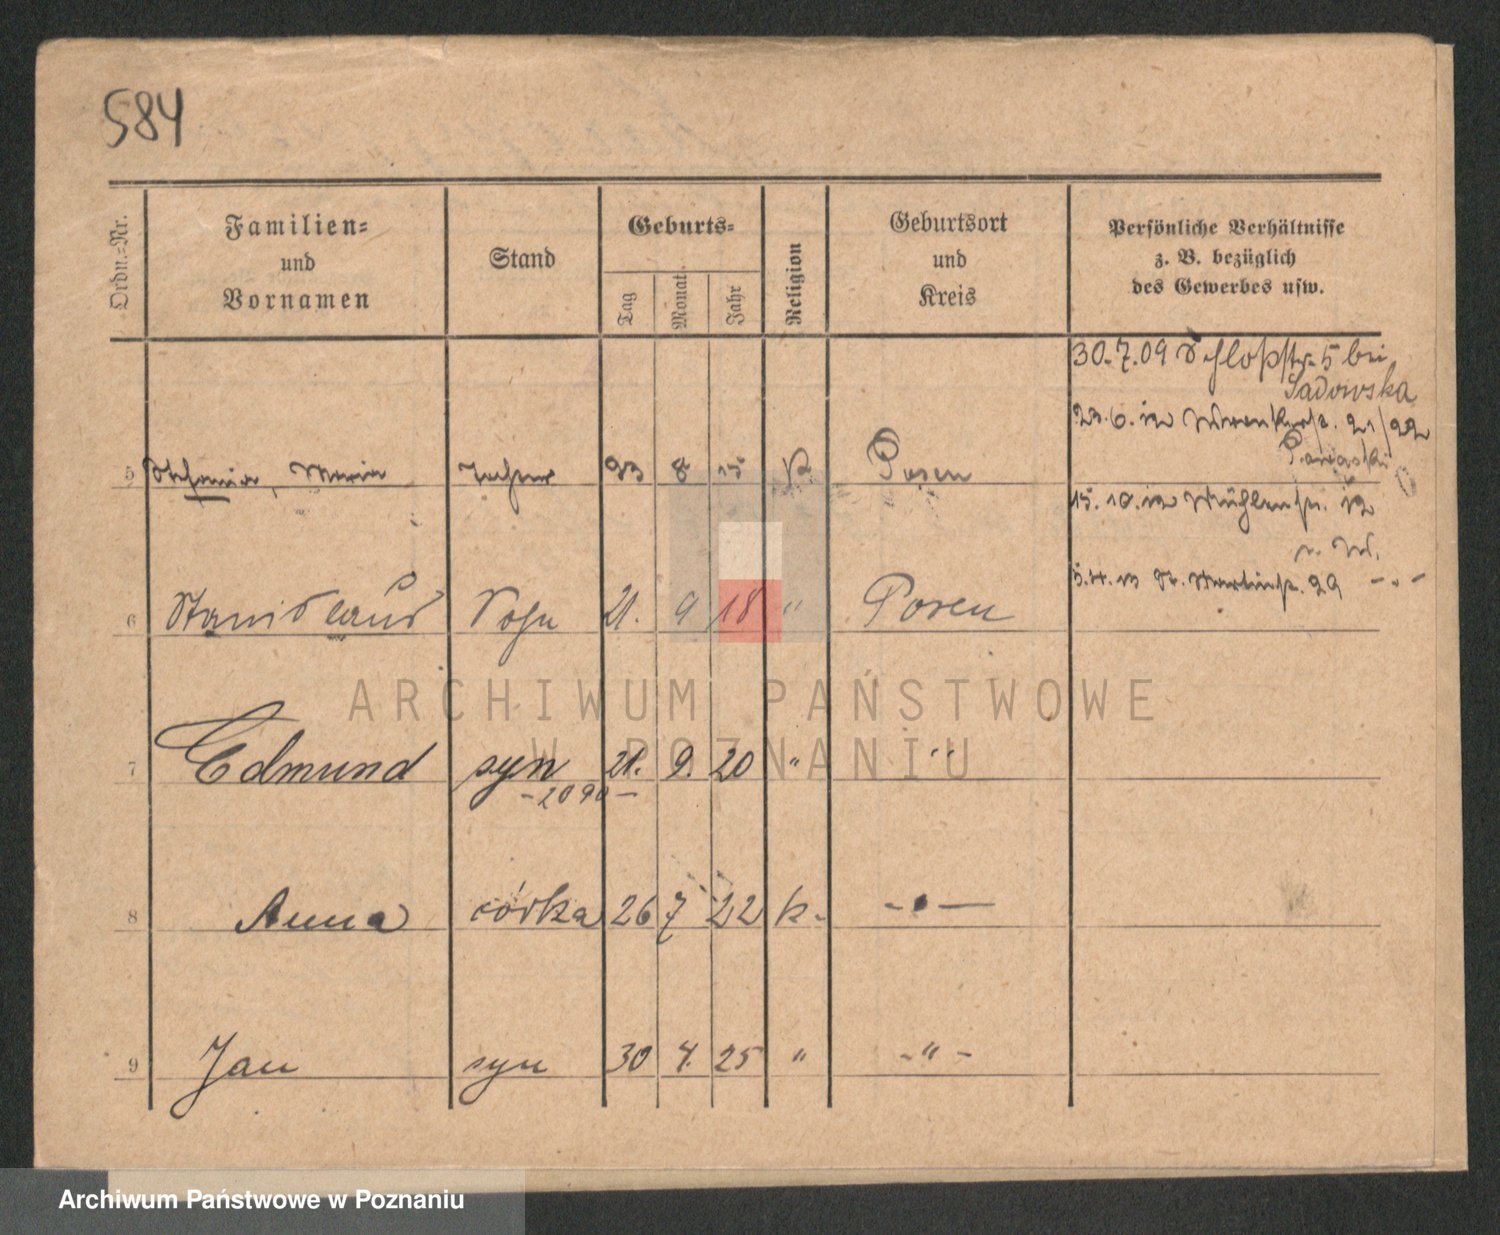 584
Ordn.-Nr.
Familien-
und
Vornamen
Stand
Geburts-
Tag
Monat
Jahr
Religion
Geburtsort
und
Kreis
Persönliche Verhältnisse
z. B. bezüglich
des Gewerbes usw.
30.7.09 Schloßstr. 5 bei
Sadowska
23.6.12 21/22
5 Stefania, Maria Tochter 23 8 15 K Posen
15.10.12 Mühlenstr. 12
5.4.13 St. Martinstr. 29 - " -
6 Stanislaus Sohn 21. 9 18 " Posen
ARCHIWUM PAŃSTWOWE
W POZNANIU
7 Edmund syn 21. 9. 20 " "
- 2090 -
8 Anna córka 26 7 22 k. - " -
9 Jan syn 30 4. 25 " - " -
Archiwum Państwowe w Poznaniu